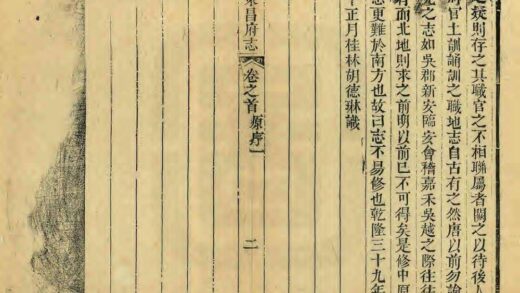 疑則存之其職官之不相聯屬者闕之以待後人
官土訓誦訓之職地志自古有之然唐以前勿論
之志如吳郡新安臨安會稽嘉禾吳越之際往往
而北地則求之前明以前已不可得矣是修中原
志更難於南方也故曰志不易修也乾隆三十九年
正月桂林胡德琳識
昌府志
卷之首 原序一
二